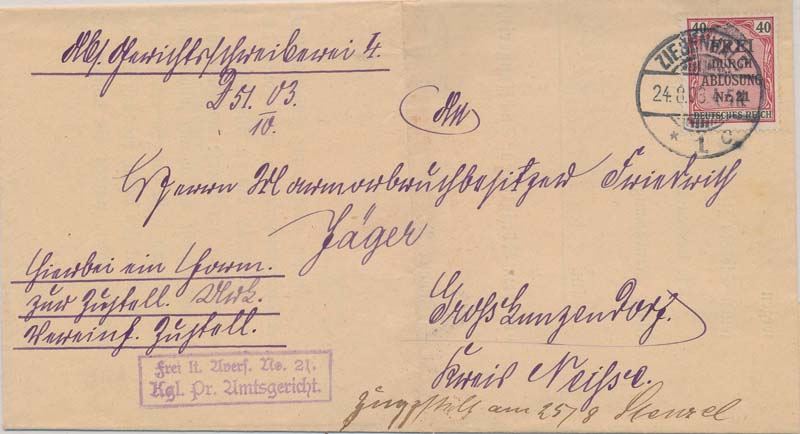 Abs. Gerichtsschreiberei 4.
D 51. 03.
10.
An
Herrn Marmorbruchbesitzer Friedrich
Jäger
Großkunzendorf.
Kreis Neisse.
Hierbei ein Form.
zur Zustell. Urk.
Vereinf. Zustell.
Frei lt. Avers. No. 21.
Kgl. Pr. Amtsgericht.
zugestellt am 25/8 Stenzel
40 40
FREI
DURCH
ABLÖSUNG
Nr. 21
DEUTSCHES REICH
24.8.03
* 1 c